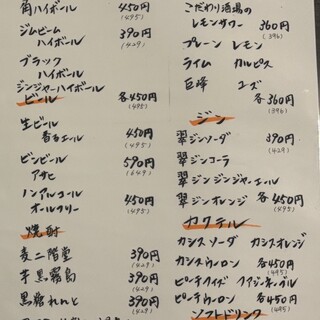 角ハイボール 450円
(495)
ジムビーム
ハイボール 390円
(429)
ブラック
ハイボール
ジンジャーハイボール
各450円
(495)
ビール
生ビール
香るエール 450円
(495)
ビンビール
アサヒ 590円
(649)
ノンアルコール
オールフリー 450円
(495)
焼酎
麦二階堂 390円
(429)
芋黒霧島 390円
(429)
黒糖れんと 390円
(429)
こだわり酒場の
レモンサワー 360円
(396)
プレーン レモン
ライム カルピス
巨峰 ユズ
各360円
(396)
ジン
翠ジンソーダ 390円
(429)
翠ジンコーラ
翠ジンジンジャーエール
翠ジンオレンジ 各450円
(495)
カクテル
カシスソーダ カシスオレンジ
カシスウーロン 各450円
(495)
ピーチフィズ ファジーネーブル
ピーチウーロン 各450円
(495)
ソフトドリンク